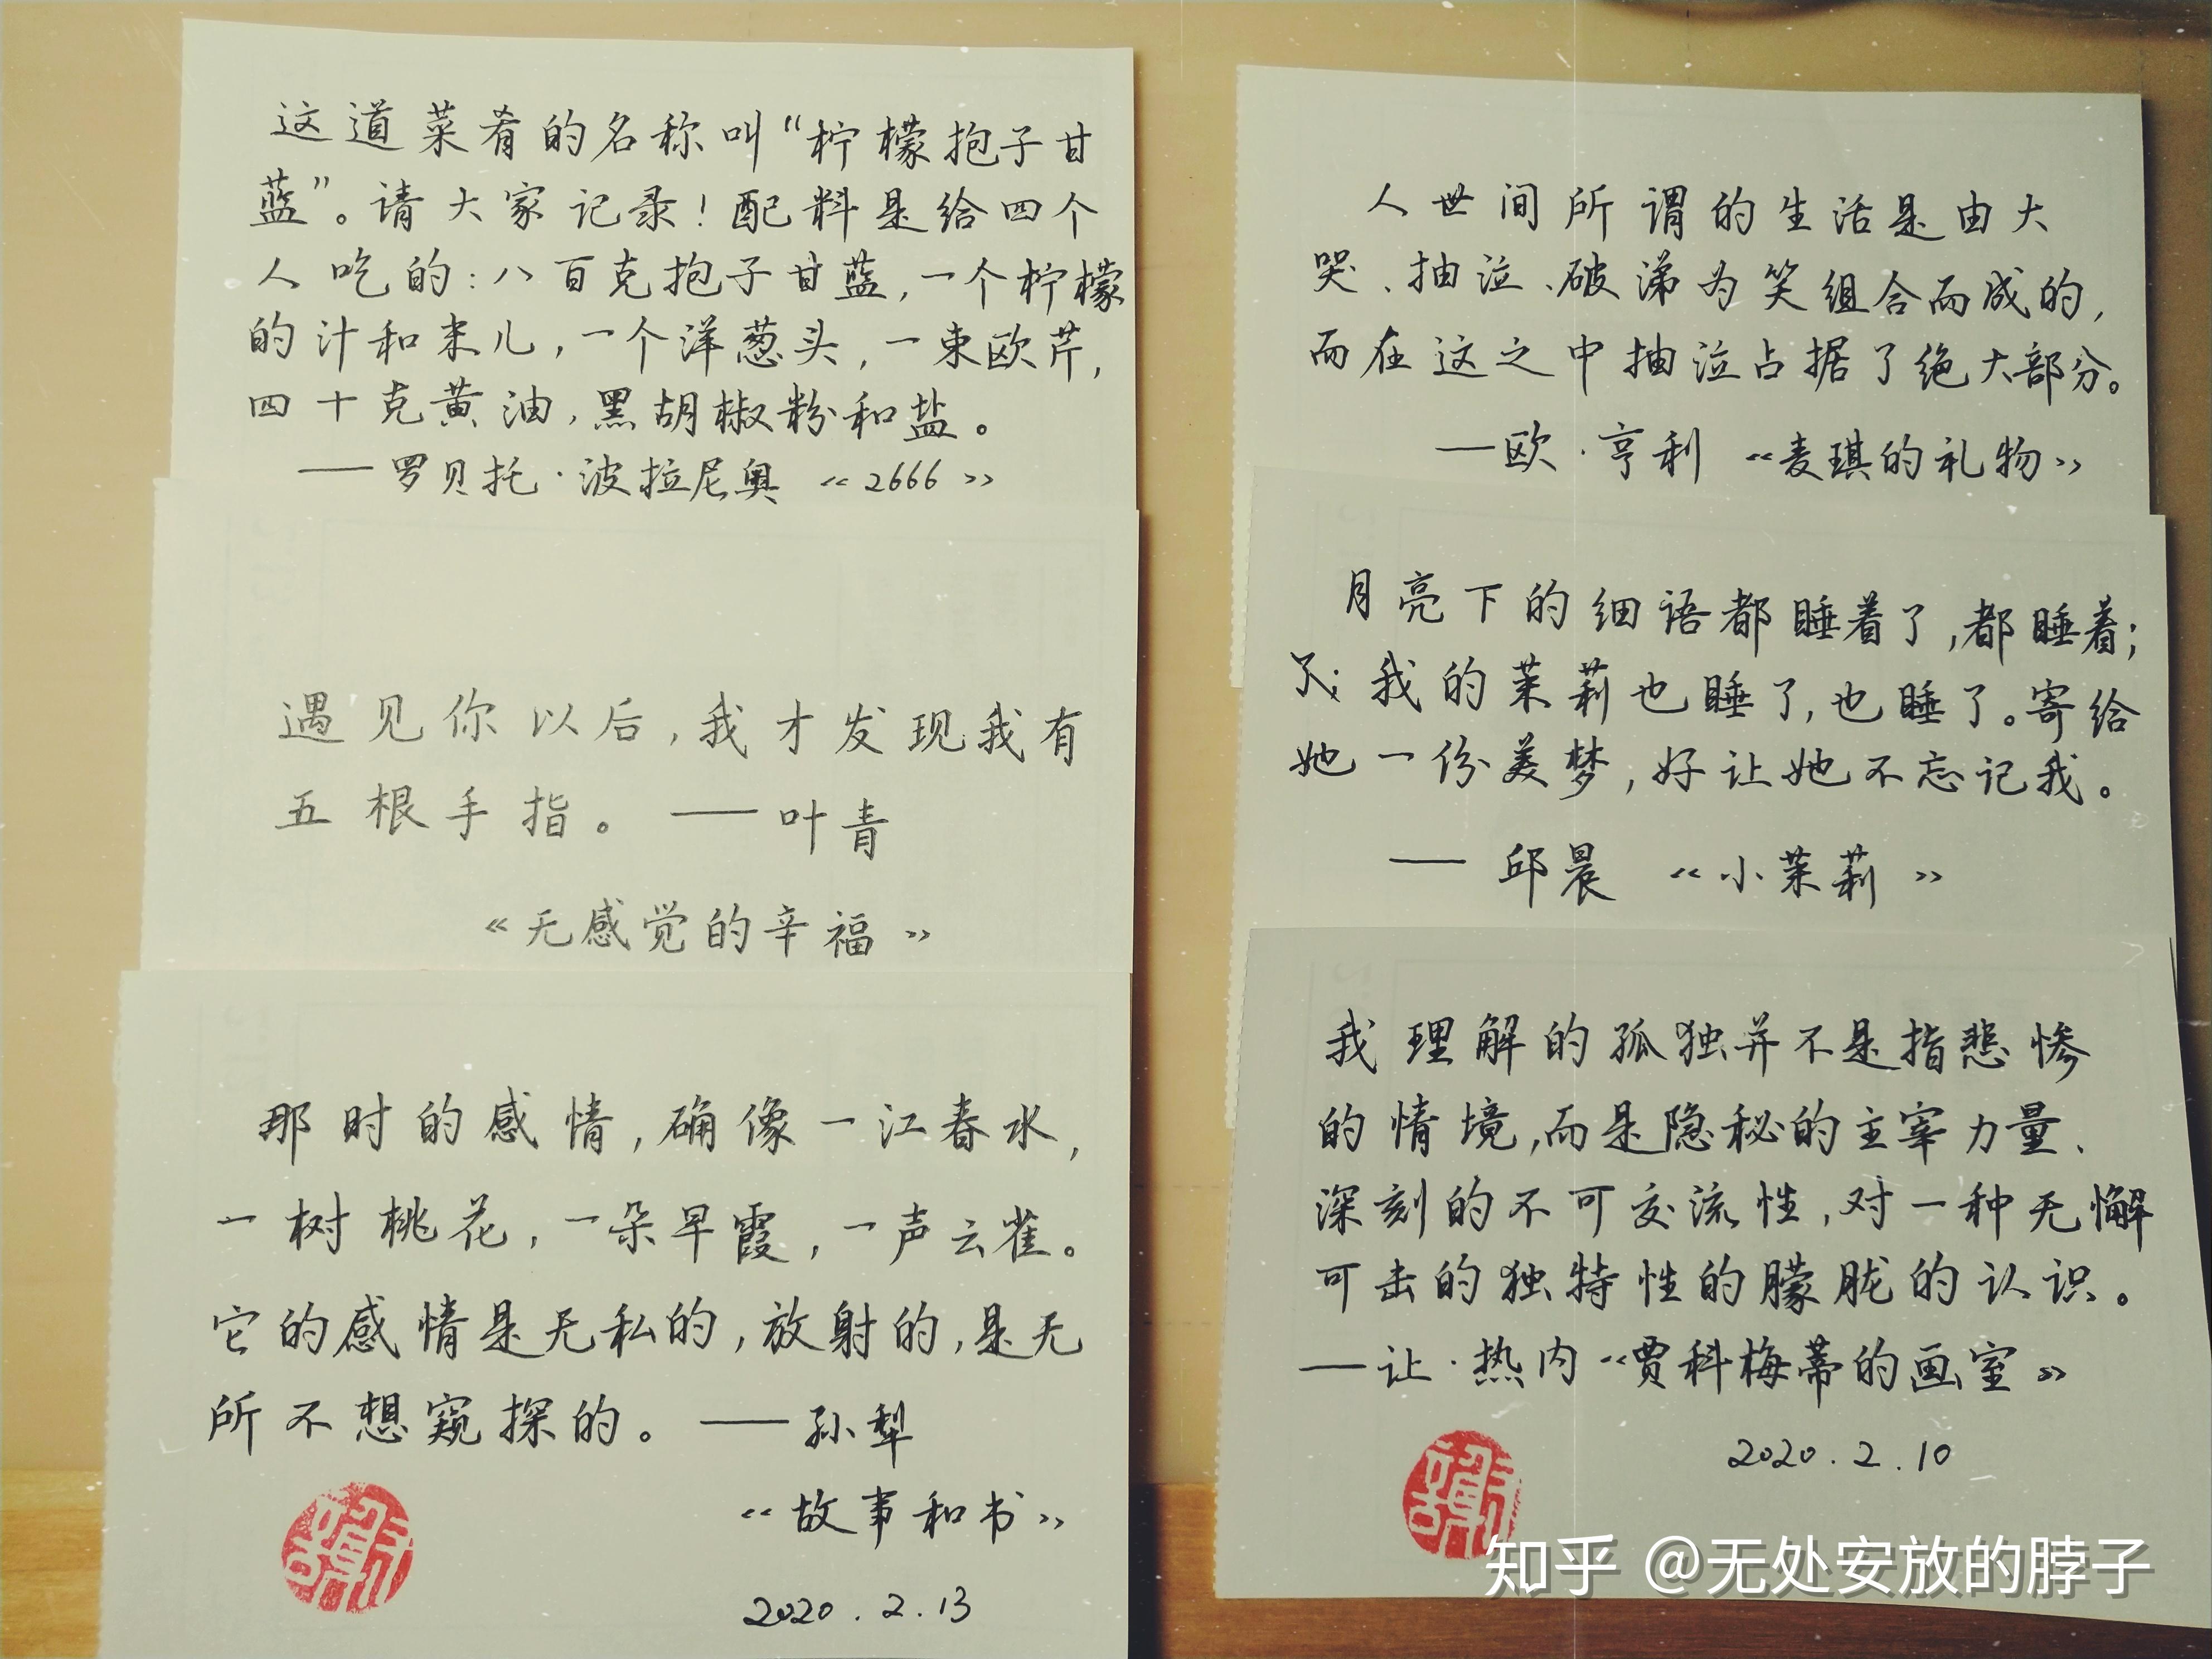 这道菜肴的名称叫“柠檬抱子甘
蓝”。请大家记录！配料是给四个
人吃的：八百克抱子甘蓝，一个柠檬
的汁和末儿，一个洋葱头，一束欧芹，
四十克黄油，黑胡椒粉和盐。
——罗贝托·波拉尼奥《2666》
遇见你以后，我才发现我有
五根手指。——叶青
《无感觉的辛福》
那时的感情，确像一江春水，
一树桃花，一朵早霞，一声云雀。
它的感情是无私的，放射的，是无
所不想窥探的。——孙犁
《故事和书》
2020.2.13
人世间所谓的生活是由大
哭、抽泣、破涕为笑组合而成的，
而在这之中抽泣占据了绝大部分。
——欧·亨利《麦琪的礼物》
月亮下的细语都睡着了，都睡着；
了；我的茉莉也睡了，也睡了。寄给
她一份美梦，好让她不忘记我。
——邱晨《小茉莉》
我理解的孤独并不是指悲惨
的情境，而是隐秘的主宰力量、
深刻的不可交流性，对一种无懈
可击的独特性的朦胧的认识。
——让·热内《贾科梅蒂的画室》
2020.2.10
知乎 @无处安放的脖子